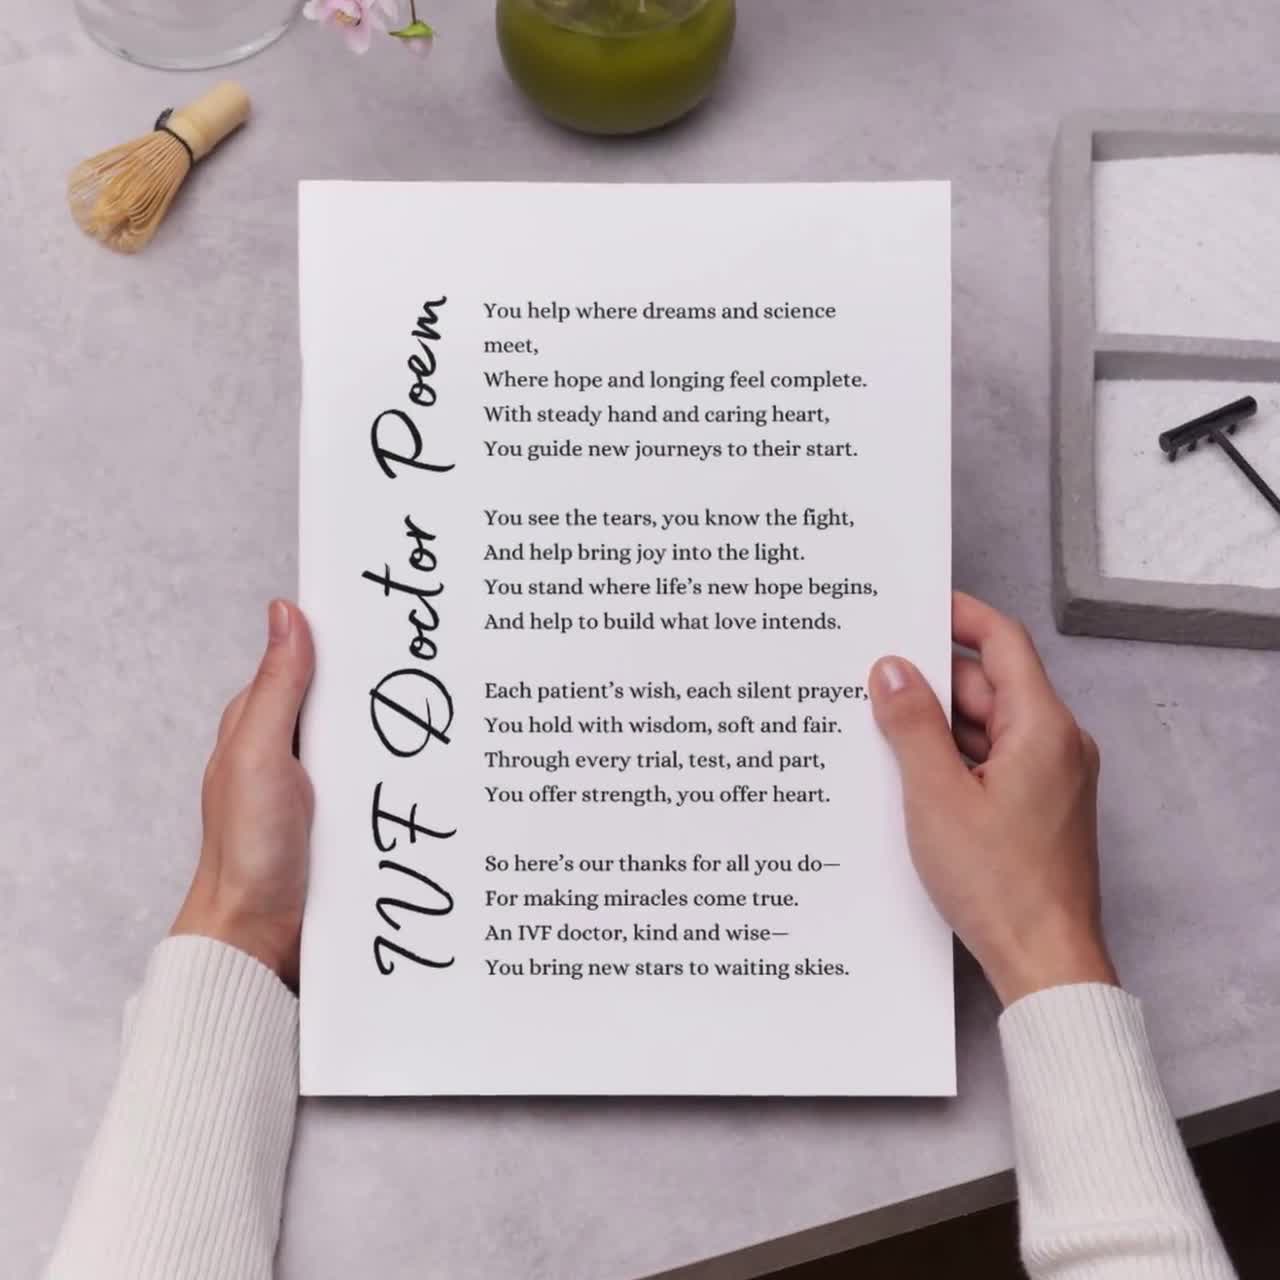 IVF Doctor Poem
You help where dreams and science
meet,
Where hope and longing feel complete.
With steady hand and caring heart,
You guide new journeys to their start.
You see the tears, you know the fight,
And help bring joy into the light.
You stand where life’s new hope begins,
And help to build what love intends.
Each patient’s wish, each silent prayer,
You hold with wisdom, soft and fair.
Through every trial, test, and part,
You offer strength, you offer heart.
So here’s our thanks for all you do—
For making miracles come true.
An IVF doctor, kind and wise—
You bring new stars to waiting skies.